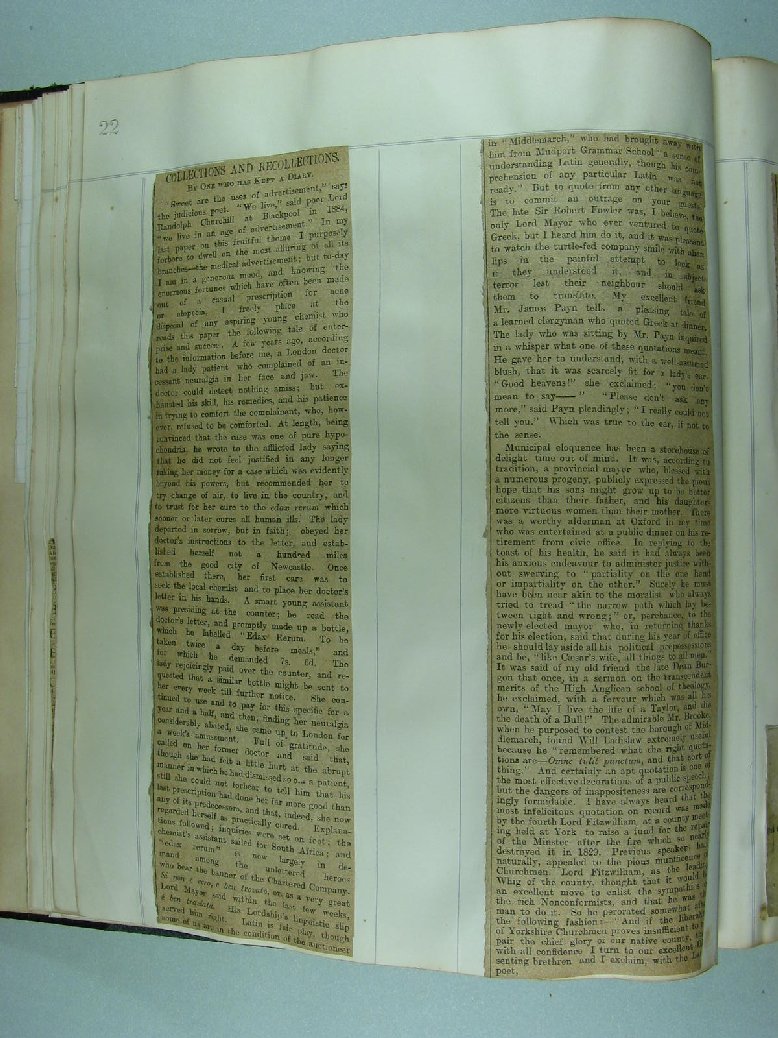 22
COLLECTIONS AND RECOLLECTIONS.
BY ONE WHO HAS KEPT A DIARY.
"Sweet are the uses of advertisement," says
the judicious poet. "We live," said poor Lord
Randolph Churchill at Blackpool in 1884,
"we live in an age of advertisement." In my
last paper on this fruitful theme I purposely
forbore to dwell on the most alluring of all its
branches—the medical advertisement; but to-day
I am in a generous mood, and knowing the
enormous fortunes which have often been made
out of a casual prescription for acne
or alopecia, I freely place at the
disposal of any aspiring young chemist who
reads this paper the following tale of enter-
prise and success. A few years ago, according
to the information before me, a London doctor
had a lady patient who complained of an in-
cessant neuralgia in her face and jaw. The
doctor could detect nothing amiss; but ex-
hausted his skill, his remedies, and his patience
in trying to comfort the complainant, who, how-
ever, refused to be comforted. At length, being
convinced that the case was one of pure hypo-
chondria, he wrote to the afflicted lady saying
that he did not feel justified in any longer
taking her money for a case which was evidently
beyond his powers, but recommended her to
try change of air, to live in the country, and
to trust for her cure to the edax rerum which
sooner or later cures all human ills. The lady
departed in sorrow, but in faith; obeyed her
doctor's instructions to the letter, and estab-
lished herself not a hundred miles
from the good city of Newcastle. Once
established there, her first care was to
seek the local chemist and to place her doctor's
letter in his hands. A smart young assistant
was presiding at the counter; he read the
doctor's letter, and promptly made up a bottle,
which he labelled "Edax Rerum. To be
taken twice a day before meals," and
for which he demanded 7s. 6d. The
lady rejoicingly paid over the counter, and re-
quested that a similar bottle might be sent to
her every week till further notice. She con-
tinued to use and to pay for this specific for a
year and a half, and then, finding her neuralgia
considerably abated, she came up to London for
a week's amusement. Full of gratitude, she
called on her former doctor and said that,
though she had felt a little hurt at the abrupt
manner in which he had dismissed so old a patient,
still she could not forbear to tell him that his
last prescription had done her far more good than
any of its predecessors, and that, indeed, she now
regarded herself as practically cured. Explana-
tions followed; inquiries were set on foot; the
chemist's assistant sailed for South Africa; and
"edax rerum" is now largely in de-
mand among the unlettered heroes
who bear the banner of the Chartered Company.
Si non è vero, è ben trovato, or, as a very great
Lord Mayor said within the last few weeks,
è ben trovatore. His Lordship's linguistic slip
served him right. Latin is fair play, though
some of us are in the condition of the auctioneer
in "Middlemarch," who had brought away with
him from Mudport Grammar School "a sense of
understanding Latin generally, though his com-
prehension of any particular Latin was not
ready." But to quote from any other language
is to commit an outrage on your guests.
The late Sir Robert Fowler was, I believe, the
only Lord Mayor who ever ventured to quote
Greek, but I heard him do it, and it was pleasant
to watch the turtle-fed company smile with alien
lips in the painful attempt to look as
if they understood it, and in abject
terror lest their neighbour should ask
them to translate. My excellent friend
Mr. James Payn tells a pleasing tale of
a learned clergyman who quoted Greek at dinner.
The lady who was sitting by Mr. Payn inquired
in a whisper what one of these quotations meant.
He gave her to understand, with a well-assumed
blush, that it was scarcely fit for a lady's ear.
"Good heavens!" she exclaimed, "you don't
mean to say——" "Please don't ask any
more," said Payn pleadingly; "I really could not
tell you." Which was true to the ear, if not to
the sense.
Municipal eloquence has been a storehouse of
delight time out of mind. It was, according to
tradition, a provincial mayor who, blessed with
a numerous progeny, publicly expressed the pious
hope that his sons might grow up to be better
citizens than their father, and his daughters
more virtuous women than their mother. There
was a worthy alderman at Oxford in my time
who was entertained at a public dinner on his re-
tirement from civic office. In replying to the
toast of his health, he said it had always been
his anxious endeavour to administer justice with-
out swerving to "partiality on the one hand
or impartiality on the other." Surely he must
have been near akin to the moralist who always
tried to tread "the narrow path which lay be-
tween right and wrong;" or, perchance, to the
newly-elected mayor who, in returning thanks
for his election, said that during his year of office
he should lay aside all his political prepossessions
and be, "like Cæsar's wife, all things to all men."
It was said of my old friend the late Dean Bur-
gon that once, in a sermon on the transcendent
merits of the High Anglican school of theology,
he exclaimed, with a fervour which was all his
own, "May I live the life of a Taylor, and die
the death of a Bull!" The admirable Mr. Brooke,
when he purposed to contest the borough of Mid-
dlemarch, found Will Ladislaw extremely useful
because he "remembered what the right quota-
tions are—Omne tulit punctum, and that sort of
thing." And certainly an apt quotation is one of
the most effective decorations of a public speech,
but the dangers of inappositeness are correspond-
ingly formidable. I have always heard that the
most infelicitous quotation on record was made
by the fourth Lord Fitzwilliam, at a county meet-
ing held at York to raise a fund for the repair
of the Minster after the fire which so nearly
destroyed it in 1829. Previous speakers had,
naturally, appealed to the pious munificence of
Churchmen. Lord Fitzwilliam, as the leading
Whig of the county, thought that it would be
an excellent move to enlist the sympathies of
the rich Nonconformists, and that he was the
man to do it. So he perorated somewhat after
the following fashion:—"And if the liberality
of Yorkshire Churchmen proves insufficient to re-
pair the chief glory of our native county, then
with all confidence I turn to our excellent Dis-
senting brethren and I exclaim, with the Latin
poet,